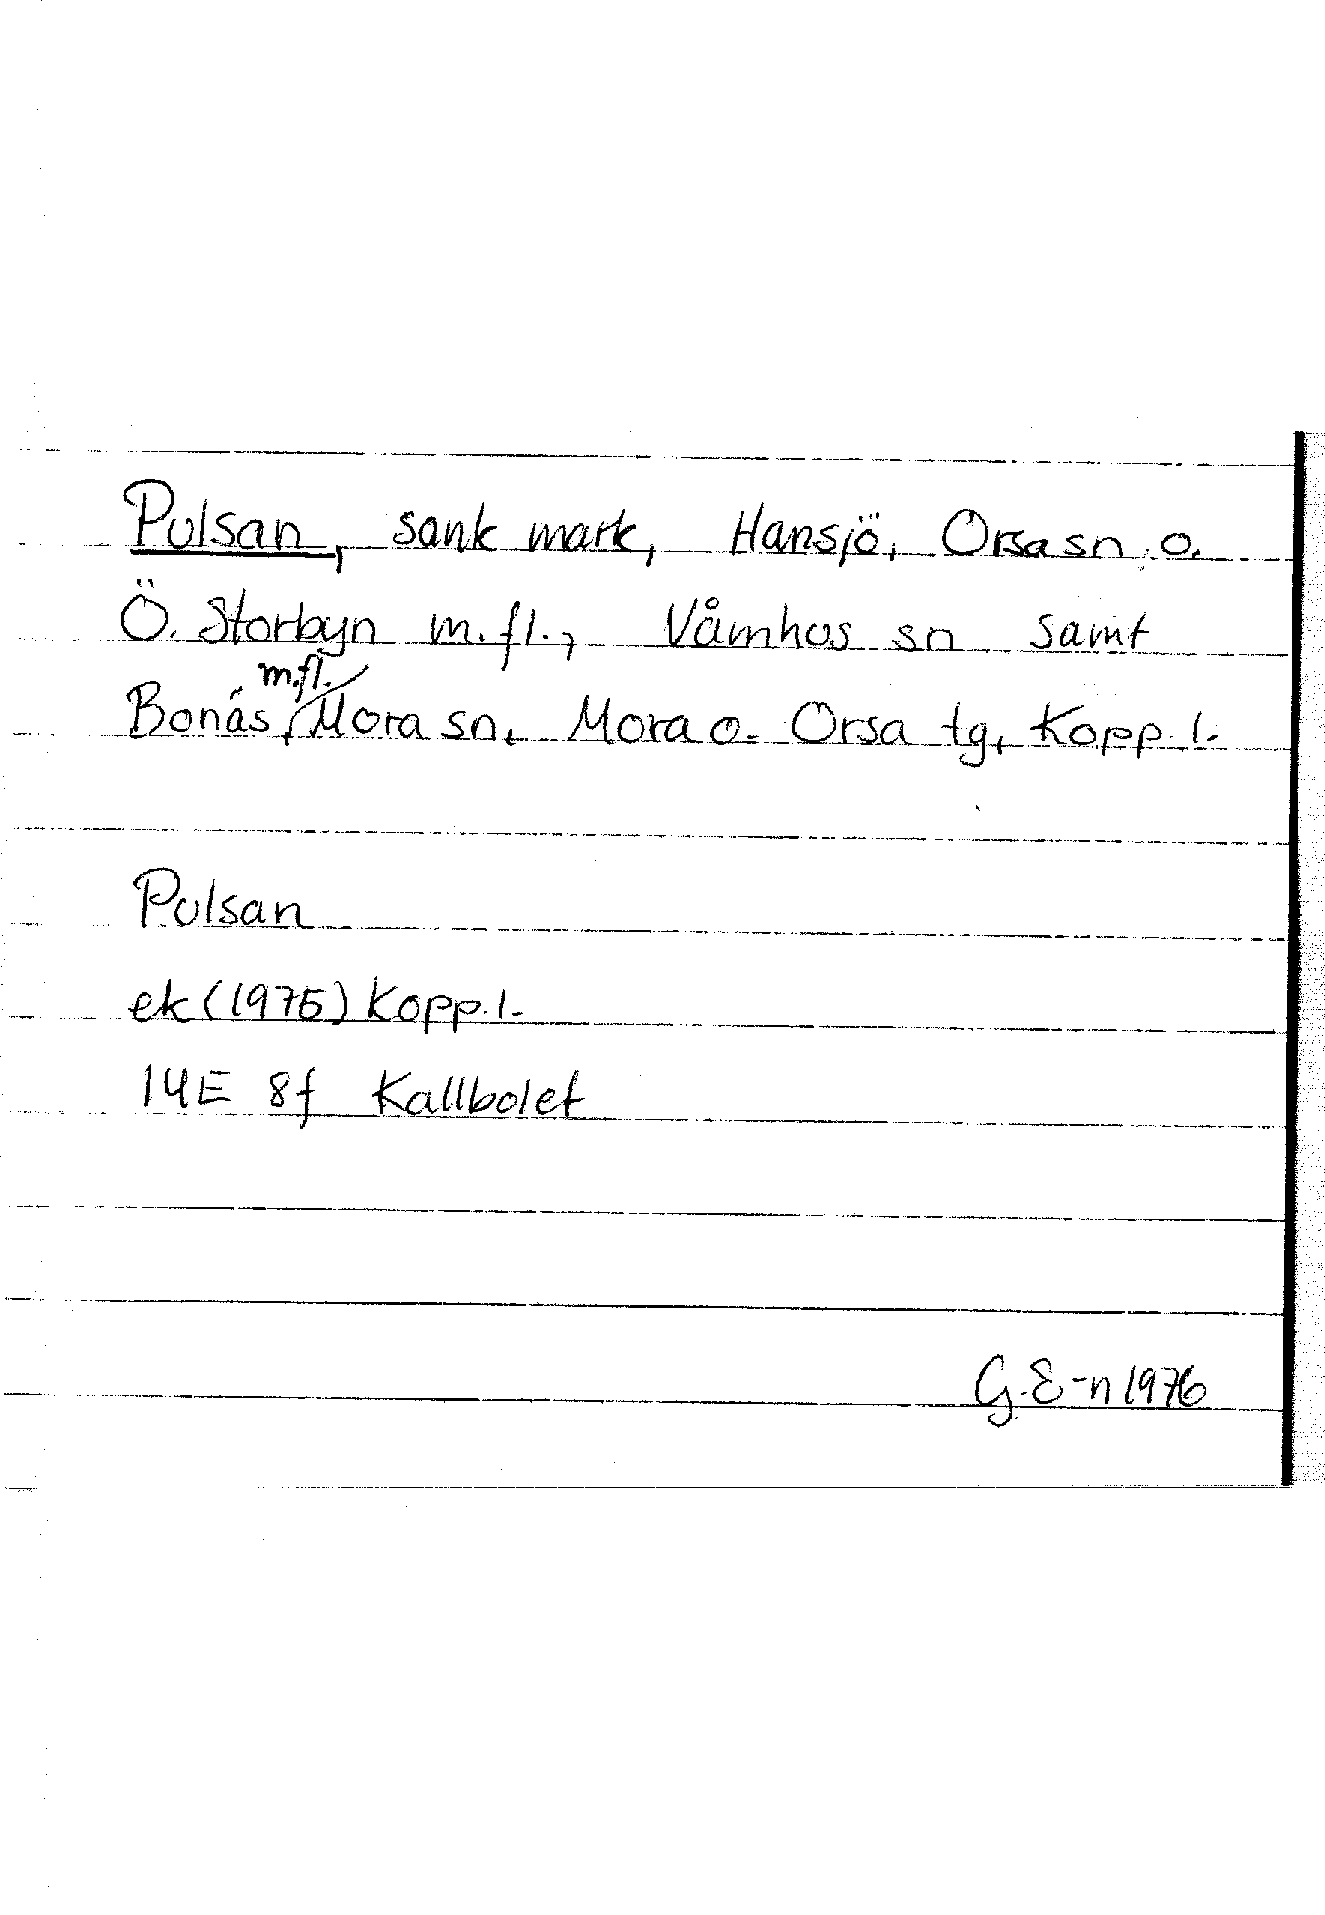 Pulsan, sank mark, Hansjö, Orsa sn o.
Ö. Storbyn m.fl., Våmhus sn samt
Bonäs m.fl., Mora sn, Mora o. Orsa tg, Kopp. l.
Pulsan
ek (1975) Kopp. l.
14E 8f Kallbolet
G. E-n 1976